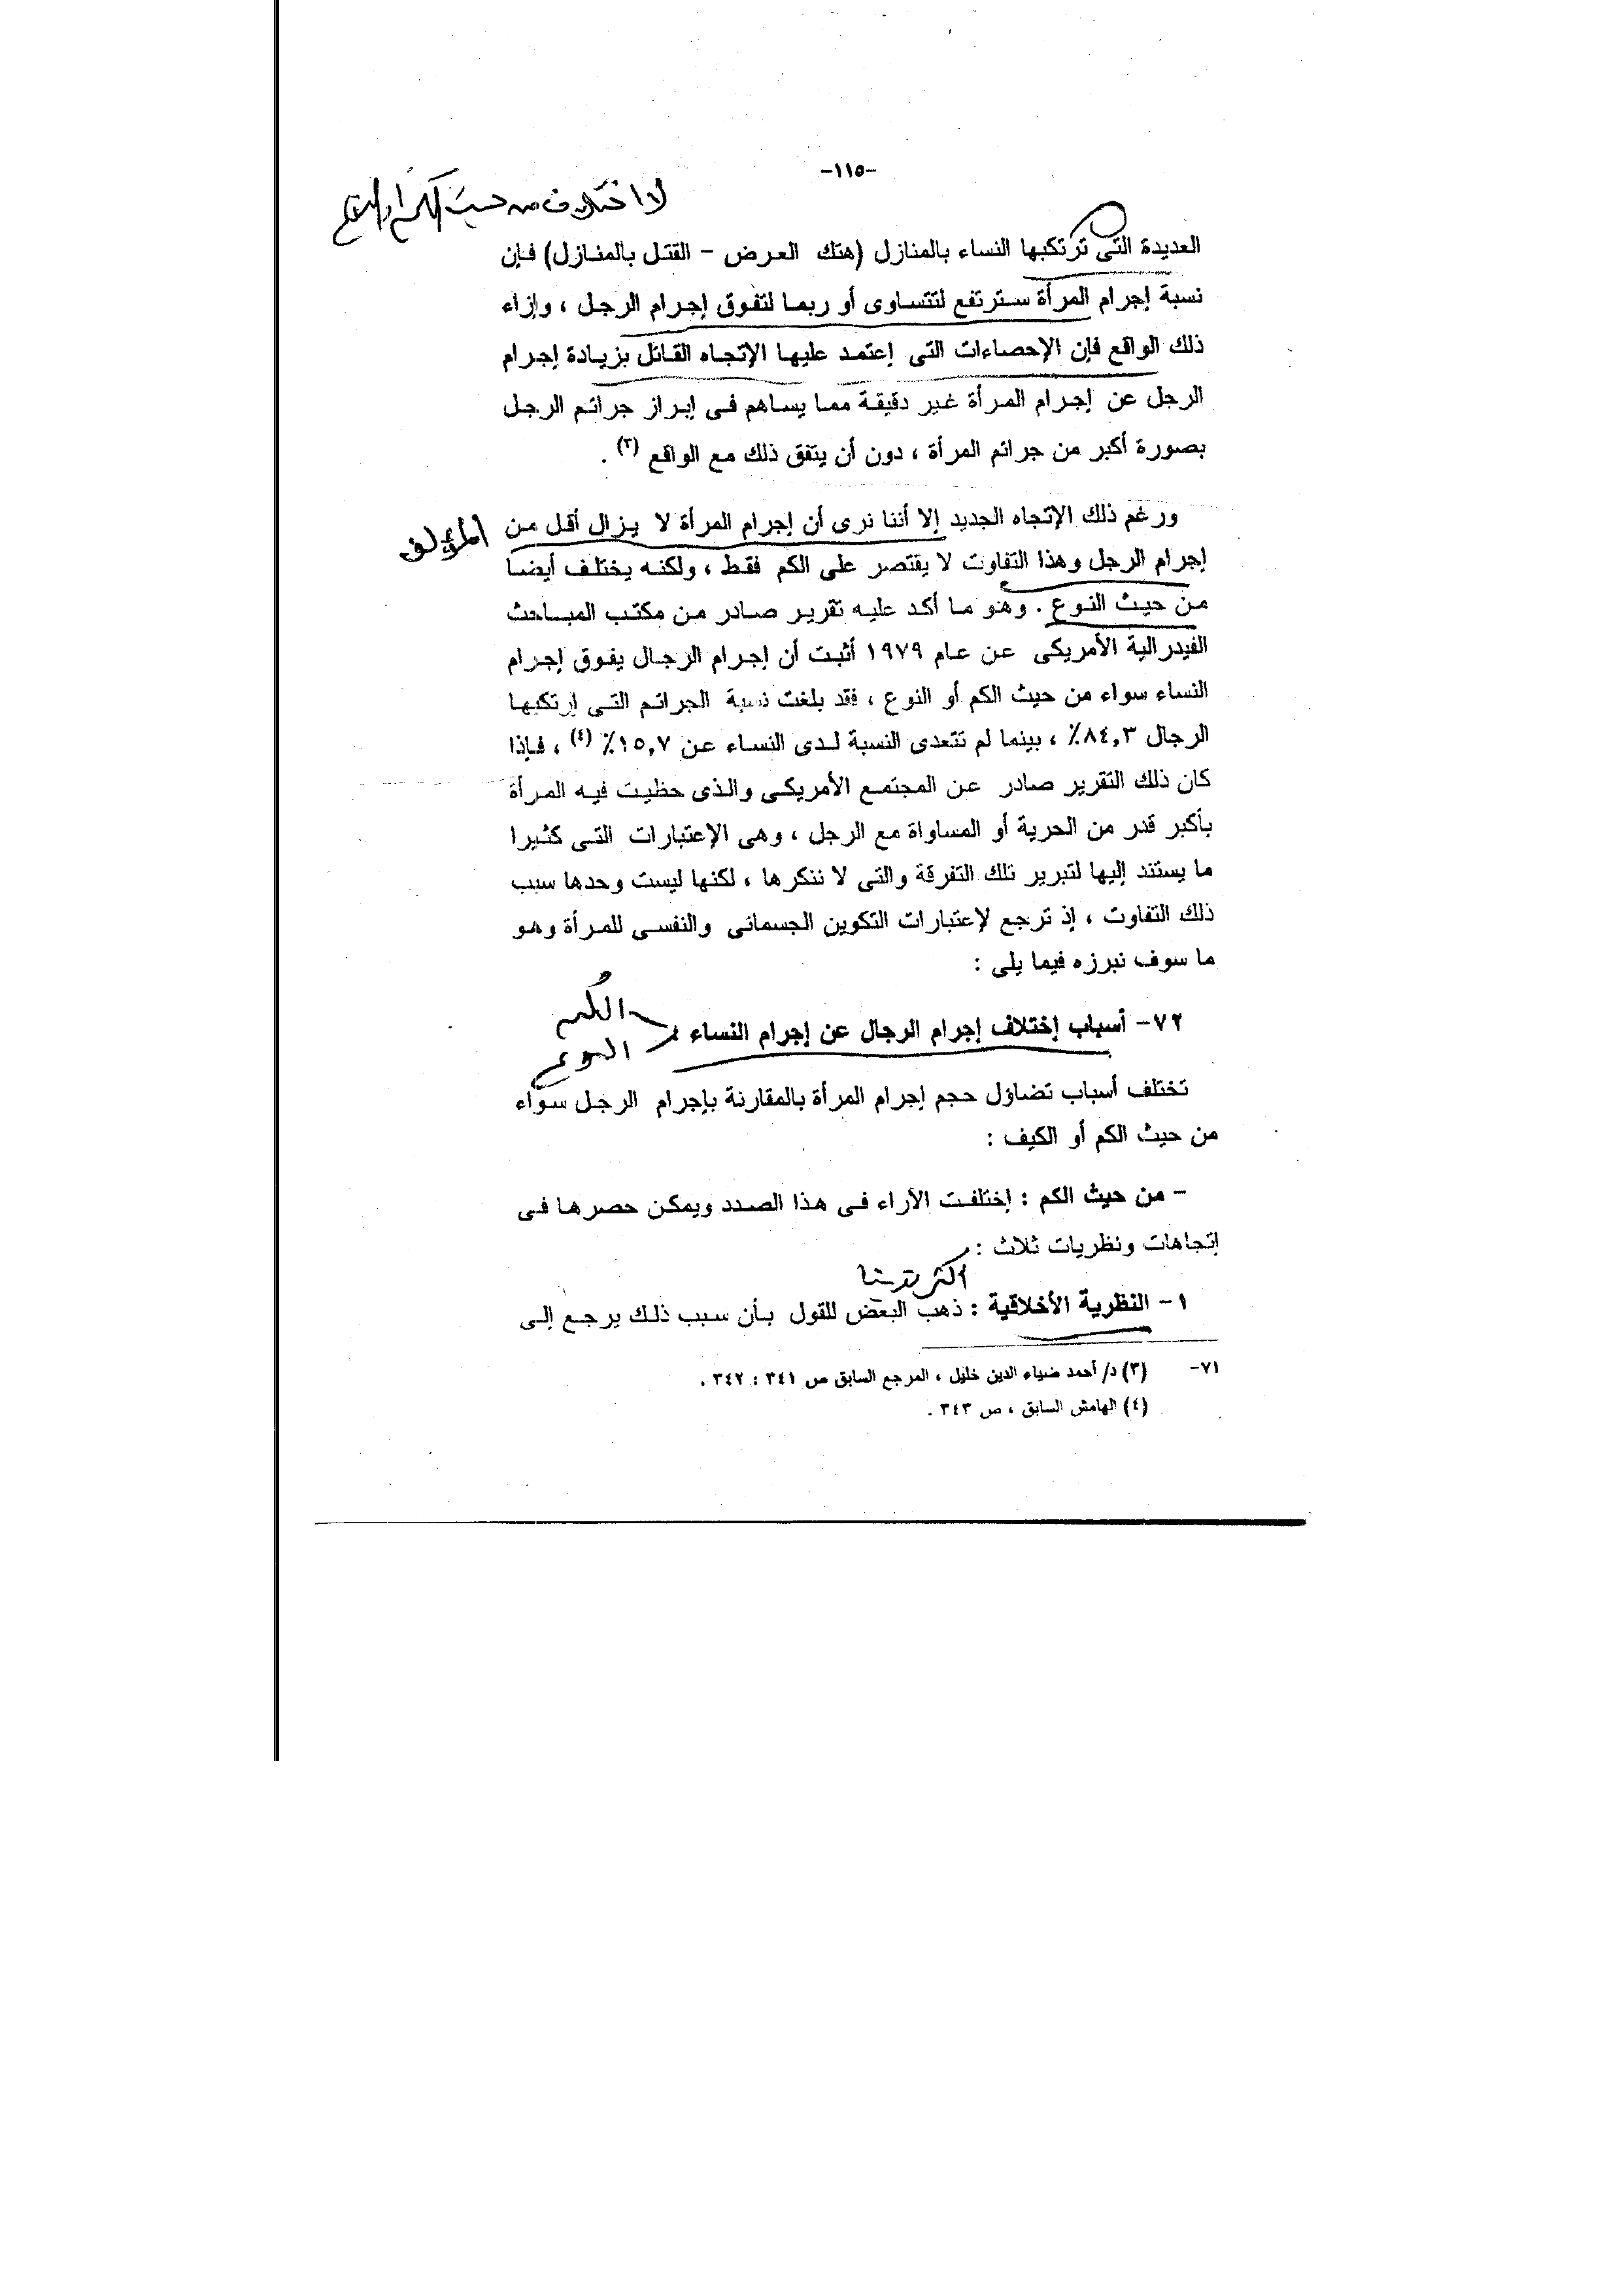 -١١٥-
لا اختلاف من حيث الكم أو النوع
العديدة التى ترتكبها النساء بالمنازل (هتك العرض - القتل بالمنازل) فإن
نسبة إجرام المرأة سترتفع لتتساوى أو ربما لتفوق إجرام الرجل ، وإزاء
ذلك الواقع فإن الإحصاءات التى إعتمد عليها الإتجاه القائل بزيادة إجرام
الرجل عن إجرام المرأة غير دقيقة مما يساهم فى إبراز جرائم الرجل
بصورة أكبر من جرائم المرأة ، دون أن يتفق ذلك مع الواقع (٣) .
ورغم ذلك الإتجاه الجديد إلا أننا نرى أن إجرام المرأة لا يزال أقل من
المؤلف
إجرام الرجل وهذا التفاوت لا يقتصر على الكم فقط ، ولكنه يختلف أيضا
من حيث النوع . وهو ما أكد عليه تقرير صادر من مكتب المباحث
الفيدرالية الأمريكى عن عام ١٩٧٩ أثبت أن إجرام الرجال يفوق إجرام
النساء سواء من حيث الكم أو النوع ، فقد بلغت نسبة الجرائم التى إرتكبها
الرجال ٨٤,٣٪ ، بينما لم تتعدى النسبة لدى النساء عن ١٥,٧٪ (٤) ، فإذا
كان ذلك التقرير صادر عن المجتمع الأمريكى والذى حظيت فيه المرأة
بأكبر قدر من الحرية أو المساواة مع الرجل ، وهى الإعتبارات التى كثيرا
ما يستند إليها لتبرير تلك التفرقة والتى لا ننكرها ، لكنها ليست وحدها سبب
ذلك التفاوت ، إذ ترجع لإعتبارات التكوين الجسمانى والنفسى للمرأة وهو
ما سوف نبرزه فيما يلى :
٧٢- أسباب إختلاف إجرام الرجال عن إجرام النساء :
الكم
النوع
تختلف أسباب تضاؤل حجم إجرام المرأة بالمقارنة بإجرام الرجل سواء
من حيث الكم أو الكيف :
- من حيث الكم : إختلفت الأراء فى هذا الصدد ويمكن حصرها فى
إتجاهات ونظريات ثلاث :
أكثر تدينا
١- النظرية الأخلاقية : ذهب البعض للقول بأن سبب ذلك يرجع إلى
٧١- (٣) د/ أحمد ضياء الدين خليل ، المرجع السابق ص ٣٤١ : ٣٤٢ .
(٤) الهامش السابق ، ص ٣٤٣ .